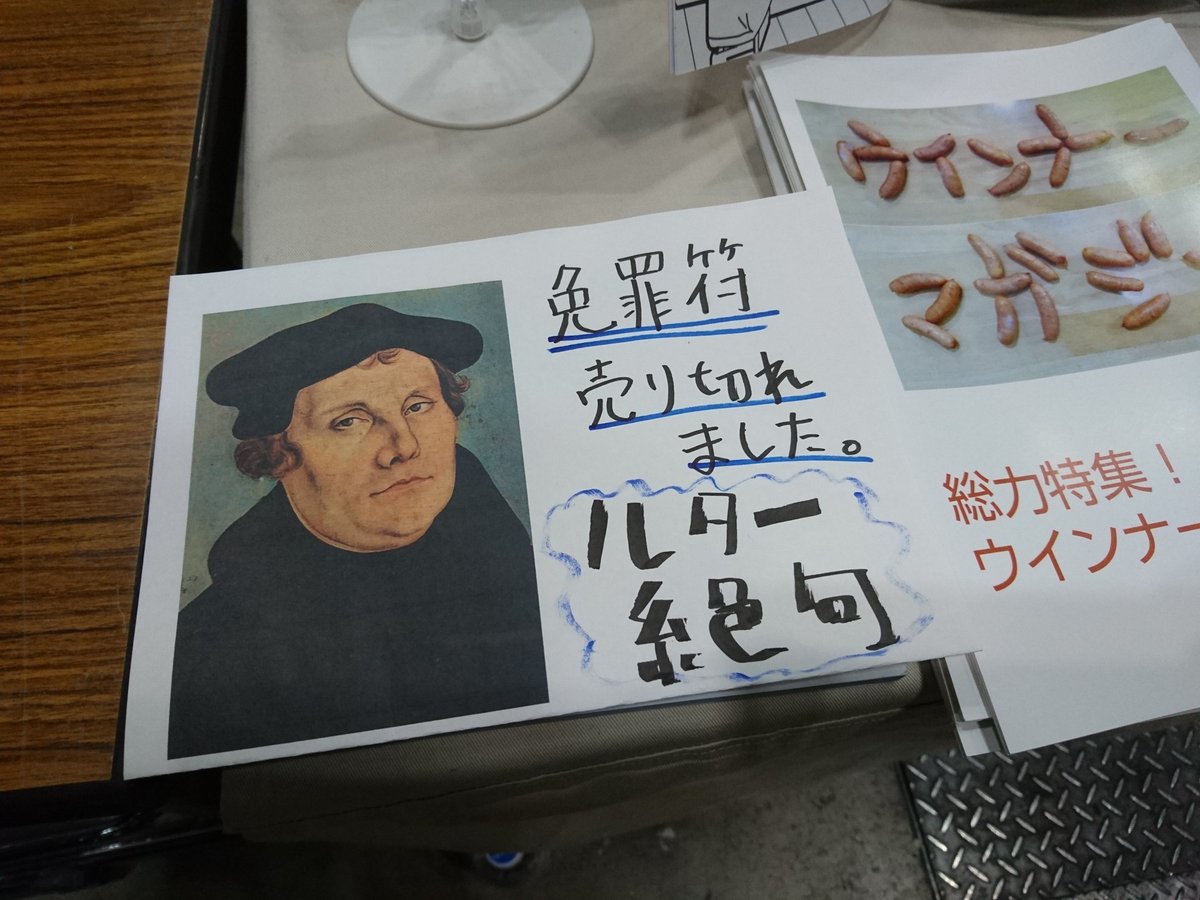 免罪符
売り切れ
ました。
ルター
絶句
ウインナー
マガジ
総力特集！
ウインナー